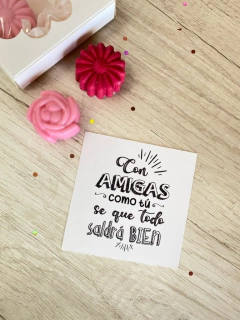 Con
AMIGAS
como tú
se que todo
saldrá BIEN